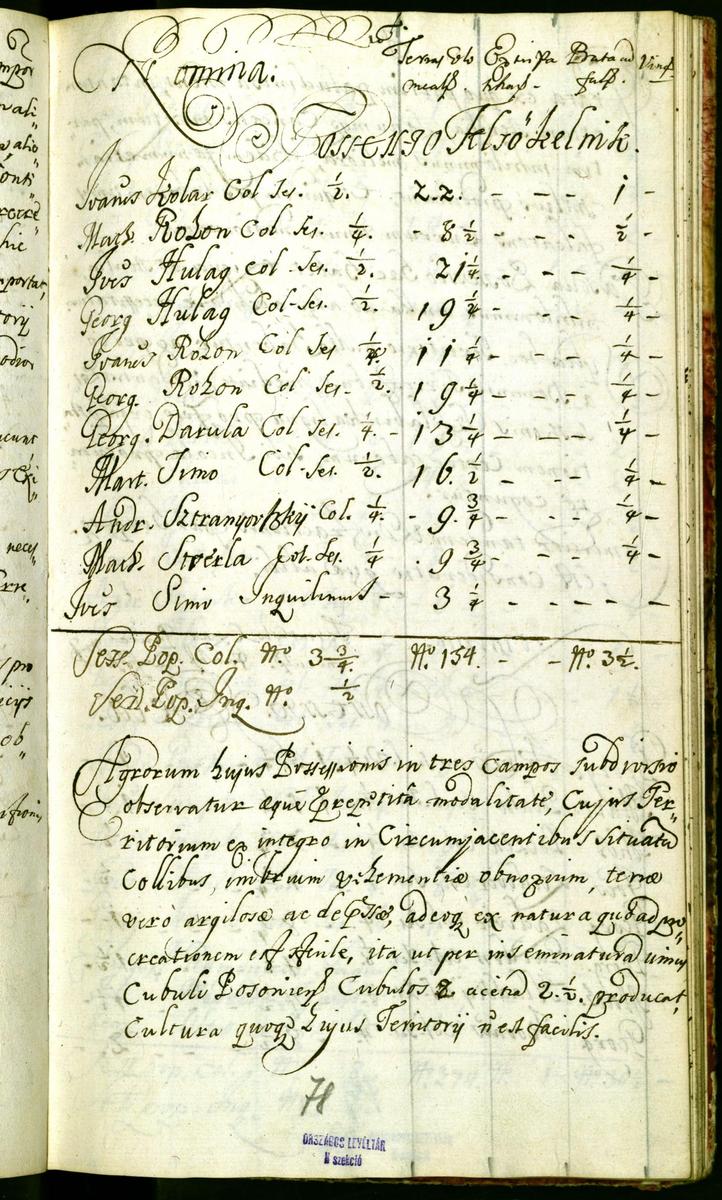 Nomina. Terras
Possessio Felsö Kelnik.
Ivanus Kolar Col Ses. 1/2. 22. - - - 1 -
Math. Rohon Col Ses. 1/4. - 8 1/2 - - - 1/2 -
Jvēs Hulag Col-Ses. 1/2. 21 1/4 - - - 1/4 -
Georg Hulag Col-Ses. 1/2. 19 1/4 - - - 1/4 -
Ivanus Rohon Col Ses 1/4. 11 1/4 - - - 1/4 -
Georg. Rohon Col Ses- 1/2. 19 1/4 - - - 1/4 -
Georg. Darula Col Ses. 1/4. - 13 1/4 - - - 1/4 -
Mart. Simo Col-Ses. 1/2. 16. 1/2 - - - 1/4 -
Andr. Sztranyovszkij Col. 1/4. - 9. 3/4 - - - 1/4 -
Math. Sverla Col. Ses. 1/4 . 9 3/4 - - - 1/4 -
Jvēs Simo Inquilinus - 3 1/4 - - - - -
Sess. Pop. Col. No. 3 3/4. No. 154. - - No. 3 1/2.
Sess. Pop. Inq. No. 1/2
Agrorum hujus Possessionis in tres Campos subdivisio
observatur æque modalitate, Cujus Ter-
ritorium ex integro in Circumjacentibus situatū
Collibus, imbrium vehementiæ obnoxium, terræ
vero argilosæ ac adeoq ex natura quo ad pro
creationem est sterile, ita ut per inseminaturā unius
Cubuli Posoniens Cubulos 2 acetiā 2. 1/2. producat,
Cultura quoq hujus Territorij n̄ est facilis.
78
ORSZÁGOS LEVÉLTÁR
N szekció